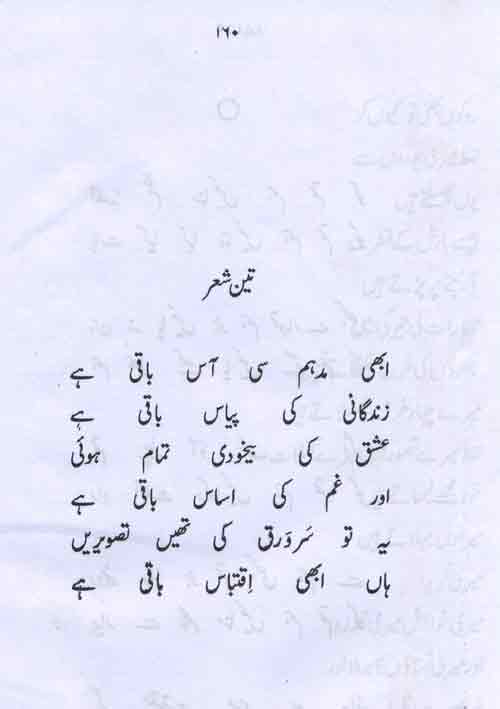 ۱۶۰
تین شعر
ابھی مدہم سی آس باقی ہے
زندگانی کی پیاس باقی ہے
عشق کی بیخودی تمام ہوئی
اور غم کی اساس باقی ہے
یہ تو سَروَرق کی تھیں تصویریں
ہاں ابھی اِقتباس باقی ہے